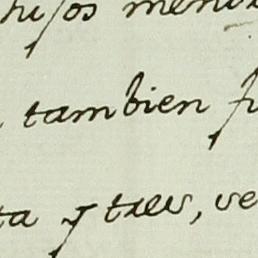 hijos menor
tambien fu
ta y tres, ve